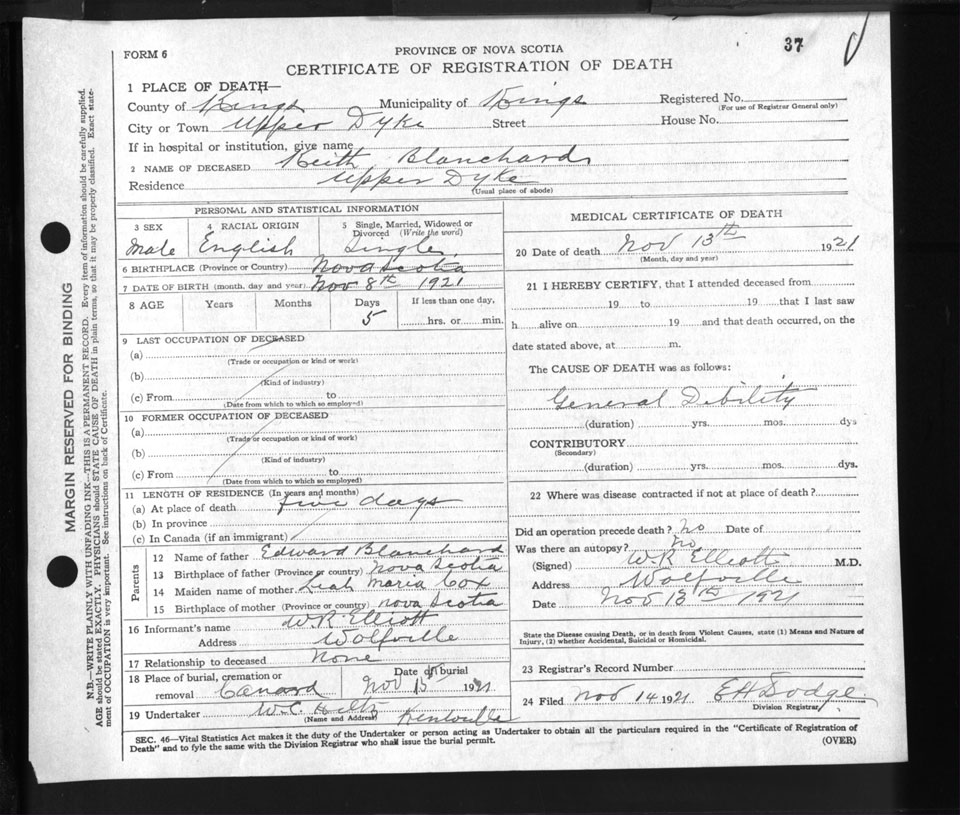 37
FORM 6
PROVINCE OF NOVA SCOTIA
CERTIFICATE OF REGISTRATION OF DEATH
1 PLACE OF DEATH—
County of Kings Municipality of Kings Registered No.
(For use of Registrar General only)
City or Town Upper Dyke Street House No.
If in hospital or institution, give name
2 NAME OF DECEASED Keith Blanchard
Residence Upper Dyke
(Usual place of abode)
PERSONAL AND STATISTICAL INFORMATION
3 SEX 4 RACIAL ORIGIN 5 Single, Married, Widowed or Divorced (Write the word)
Male English Single
6 BIRTHPLACE (Province or Country) Nova Scotia
7 DATE OF BIRTH (month, day and year) Nov 8th 1921
8 AGE Years Months Days If less than one day,
5 hrs. or min.
9 LAST OCCUPATION OF DECEASED
(a)
(Trade or occupation or kind or work)
(b)
(Kind of industry)
(c) From to
(Date from which to which so employed)
10 FORMER OCCUPATION OF DECEASED
(a)
(Trade or occupation or kind of work)
(b)
(Kind of industry)
(c) From to
(Date from which to which so employed)
11 LENGTH OF RESIDENCE (In years and months)
(a) At place of death five days
(b) In province
(c) In Canada (if an immigrant)
Parents
12 Name of father Edward Blanchard
13 Birthplace of father (Province or country) Nova Scotia
14 Maiden name of mother Leah Maria Cox
15 Birthplace of mother (Province or country) Nova Scotia
16 Informant's name W.R. Elliott
Address Wolfville
17 Relationship to deceased None
18 Place of burial, cremation or removal Canard Date of burial Nov 15 1921
19 Undertaker W.C. Hiltz Kentville
(Name and Address)
MEDICAL CERTIFICATE OF DEATH
20 Date of death Nov 13th 1921
(Month, day and year)
21 I HEREBY CERTIFY, that I attended deceased from
19 to 19 that I last saw
h alive on 19 and that death occurred, on the
date stated above, at m.
The CAUSE OF DEATH was as follows:
General Dibility
(duration) yrs. mos. dys
CONTRIBUTORY
(Secondary)
(duration) yrs. mos. dys.
22 Where was disease contracted if not at place of death?
Did an operation precede death? No Date of
Was there an autopsy? No
(Signed) W.R. Elliott M.D.
Address Wolfville
Date Nov 13th 1921
State the Disease causing Death, or in death from Violent Causes, state (1) Means and Nature of
Injury, (2) whether Accidental, Suicidal or Homicidal.
23 Registrar's Record Number
24 Filed Nov 14 1921 E H Dodge
Division Registrar
SEC. 46—Vital Statistics Act makes it the duty of the Undertaker or person acting as Undertaker to obtain all the particulars required in the "Certificate of Registration of
Death" and to fyle the same with the Division Registrar who shall issue the burial permit.
(OVER)
MARGIN RESERVED FOR BINDING
N.B.—WRITE PLAINLY WITH UNFADING INK—THIS IS A PERMANENT RECORD. Every item of information should be carefully supplied.
AGE should be stated EXACTLY. PHYSICIANS should STATE CAUSE OF DEATH in plain terms, so that it may be properly classified. Exact state-
ment of OCCUPATION is very important. See instructions on back of Certificate.